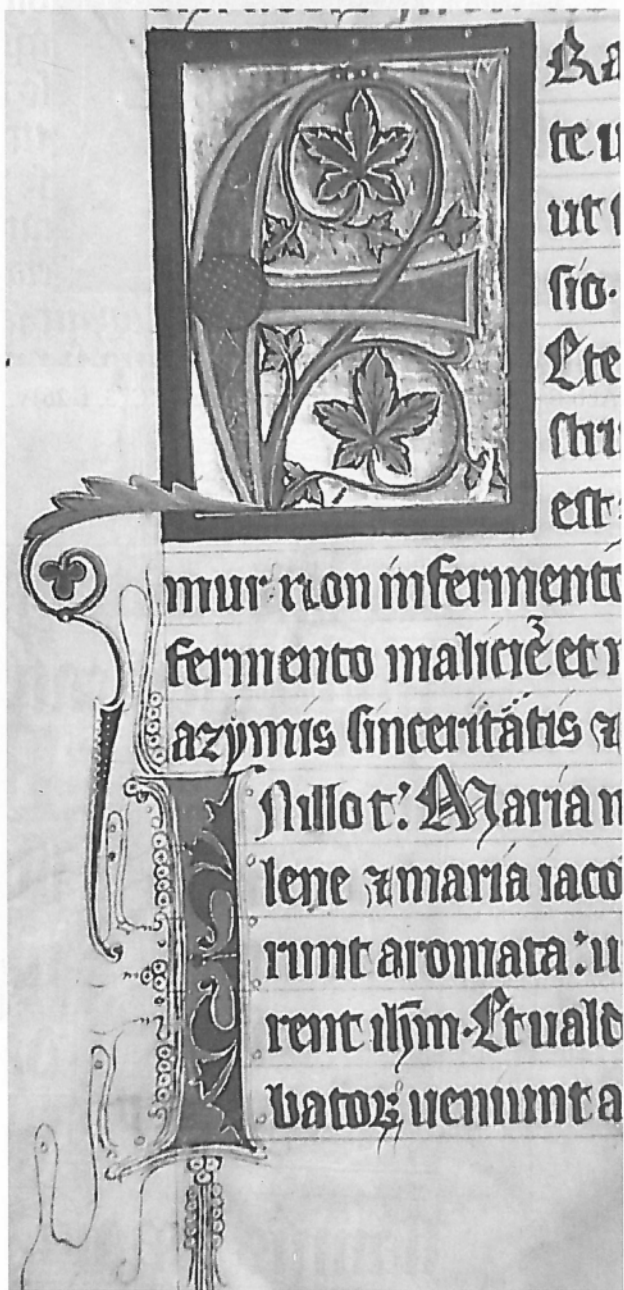 Ra
te u
ut
sio.
Ete
stri
est
mur non in fermento
fermento malicie et n
azymis sinceritatis ⁊
In illo t̉. Maria m
lene ⁊ maria iaco
runt aromata: u
rent ih̅m. Et uald
batoꝝ ueniunt a